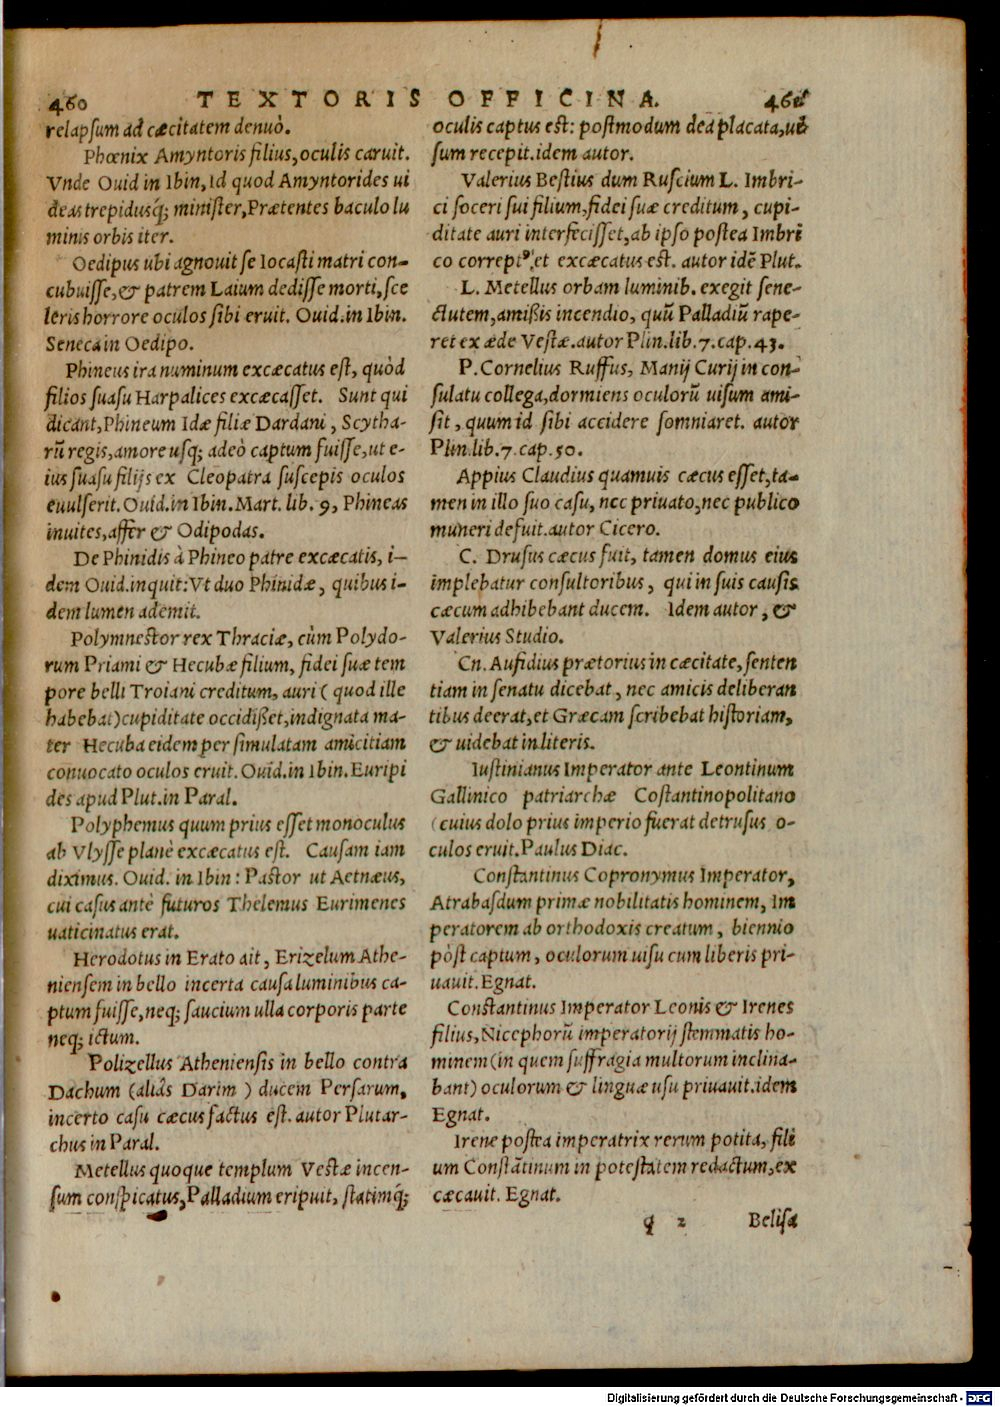 460 TEXTORIS OFFICINA. 461
relapsum ad cæcitatem denuò.
Phœnix Amyntoris filius, oculis caruit.
Vnde Ouid in Ibin, Id quod Amyntorides ui
deas trepidusq́; minister, Prætentes baculo lu
minis orbis iter.
Oedipus ubi agnouit se Iocasti matri con-
cubuisse, & patrem Laium dedisse morti, sce
leris horrore oculos sibi eruit. Ouid. in Ibin.
Seneca in Oedipo.
Phineus ira numinum excæcatus est, quòd
filios suasu Harpalices excæcasset. Sunt qui
dicant, Phineum Idæ filiæ Dardani, Scytha-
rũ regis, amore usq; adeò captum fuisse, ut e-
ius suasu filijs ex Cleopatra suscepis oculos
euulserit. Ouid. in Ibin. Mart. lib. 9, Phineas
inuites, affer & Odipodas.
De Phinidis à Phineo patre excæcatis, i-
dem Ouid. inquit: Vt duo Phinidæ, quibus i-
dem lumen ademit.
Polymnestor rex Thraciæ, cùm Polydo-
rum Priami & Hecubæ filium, fidei suæ tem
pore belli Troiani creditum, auri ( quod ille
habebat) cupiditate occidißet, indignata ma-
ter Hecuba eidem per simulatam amicitiam
conuocato oculos eruit. Ouid. in Ibin. Euripi
des apud Plut. in Paral.
Polyphemus quum prius esset monoculus
ab Vlysse planè excæcatus est. Causam iam
diximus. Ouid. in Ibin: Pastor ut Aetnæus,
cui casus antè futuros Thelemus Eurimenes
uaticinatus erat.
Herodotus in Erato ait, Erizelum Athe-
niensem in bello incerta causa luminibus ca-
ptum fuisse, neq; saucium ulla corporis parte
neq; ictum.
Polizellus Atheniensis in bello contra
Dachum (aliâs Darim ) ducem Persarum,
incerto casu cæcus factus est. autor Plutar-
chus in Paral.
Metellus quoque templum Vestæ incen-
sum conspicatus, Palladium eripuit, statimq́;
oculis captus est: postmodum dea placata, ui
sum recepit. idem autor.
Valerius Bestius dum Ruscium L. Imbri-
ci soceri sui filium, fidei suæ creditum, cupi-
ditate auri interfecisset, ab ipso postea Imbri
co correptꝰ, et excæcatus est. autor idẽ Plut.
L. Metellus orbam luminib. exegit sene-
ctutem, amißis incendio, quũ Palladiũ rape-
ret ex æde Vestæ. autor Plin. lib. 7. cap. 43.
P. Cornelius Ruffus, Manij Curij in con-
sulatu collega, dormiens oculorũ uisum ami-
sit, quum id sibi accidere somniaret. autor
Plin. lib. 7. cap. 50.
Appius Claudius quamuis cæcus esset, ta-
men in illo suo casu, nec priuato, nec publico
muneri defuit. autor Cicero.
C. Drusus cæcus fuit, tamen domus eius
implebatur consultoribus, qui in suis causis
cæcum adhibebant ducem. Idem autor, &
Valerius Studio.
Cn. Aufidius prætorius in cæcitate, senten
tiam in senatu dicebat, nec amicis deliberan
tibus deerat, et Græcam scribebat historiam,
& uidebat in literis.
Iustinianus Imperator ante Leontinum
Gallinico patriarchæ Costantinopolitano
(cuius dolo prius imperio fuerat detrusus o-
culos eruit. Paulus Diac.
Constantinus Copronymus Imperator,
Atrabasdum primæ nobilitatis hominem, Im
peratorem ab orthodoxis creatum, biennio
pòst captum, oculorum uisu cum liberis pri-
uauit. Egnat.
Constantinus Imperator Leonis & Irenes
filius, Nicephorũ imperatorij stemmatis ho-
minem (in quem suffragia multorum inclina-
bant) oculorum & linguæ usu priuauit. idem
Egnat.
Irene postea imperatrix rerum potita, fili
um Constãtinum in potestatem redactum, ex
cæcauit. Egnat.
q 2 Belisa
Digitalisierung gefördert durch die Deutsche Forschungsgemeinschaft - DFG